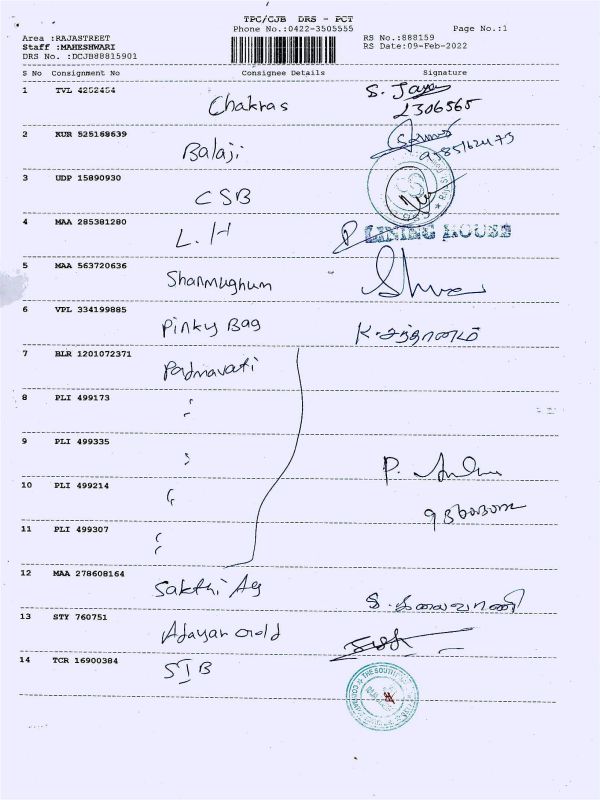 TPC/CJB DRS - PCT
Phone No.:0422-3505555
Page No.:1
Area :RAJASTREET
RS No.:888159
Staff :MAHESHWARI
RS Date:09-Feb-2022
DRS No. :DCJB88815901
S No Consignment No Consignee Details Signature
1 TVL 4252454 Chakras S. Jaya
L306565
2 KUR 525168639 Balaji
3 UDP 15890930 CSB
4 MAA 285381280 L.H P LINING HOUSE
5 MAA 563720636 Shanmughum
6 VPL 334199885 Pinky Bag K.சந்தானம்
7 BLR 1201072371 Padmavati
8 PLI 499173 "
9 PLI 499335 "
10 PLI 499214 "
11 PLI 499307 "
12 MAA 278608164 Sakthi Ag S.கலைவாணி
13 STY 760751
14 TCR 16900384 SIB
THE SOUTH